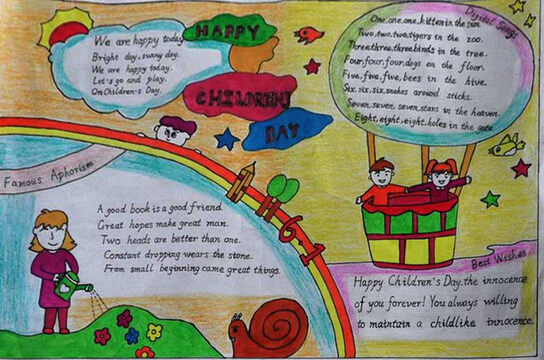 We are happy today
Bright day, sunny day.
We are happy today.
Let's go and play.
On Children's Day.
HAPPY
CHILDREN'S
DAY
Digital Songs
One, one, one, kitten in the sun
Two, two, two, tigers in the zoo.
Three, three, three, birds in the tree.
Four, four, four, dogs on the floor.
Five, five, five, bees in the hive.
Six, six, six, snakes around sticks.
Seven, seven, seven, stars in the heaven.
Eight, eight, eight, holes in the gate.
Famous Aphorism
A good book is a good friend.
Great hopes make great man.
Two heads are better than one.
Constant dropping wears the stone.
From small beginning came great things.
6-1
Best Wishes
Happy Children's Day. the innocence
of you forever! You always willing
to maintain a childlike innocence.